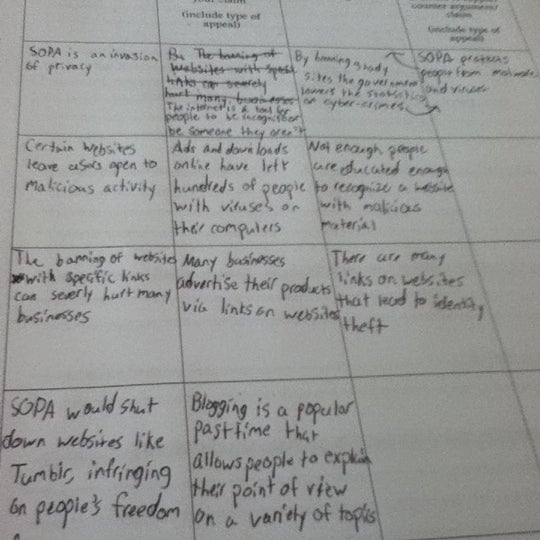 your claim
(include type of
appeal)
counter argument/
claim
(include type of
appeal)
SOPA is an invasion
of privacy
By The banning of
websites with specif
links can severly
hurt many businesses
The internet is a tool for
people to be recognized or
be someone they aren't
By banning shady
sites the government
lowers the statistics
on cyber-crimes
SOPA protects
people from malware
and viruses
Certain websites
leave users open to
malicious activity
Ads and downloads
online have left
hundreds of people
with viruses on
their computers
Not enough people
are educated enough
to recognize a website
with malicious
material
The banning of websites
with specific links
can severly hurt many
businesses
Many businesses
advertise their products
via links on websites
There are many
links on websites
that lead to identity
theft
SOPA would shut
down websites like
Tumblr, infringing
on people's freedom
Blogging is a popular
pasttime that
allows people to explain
their point of view
on a variety of topics